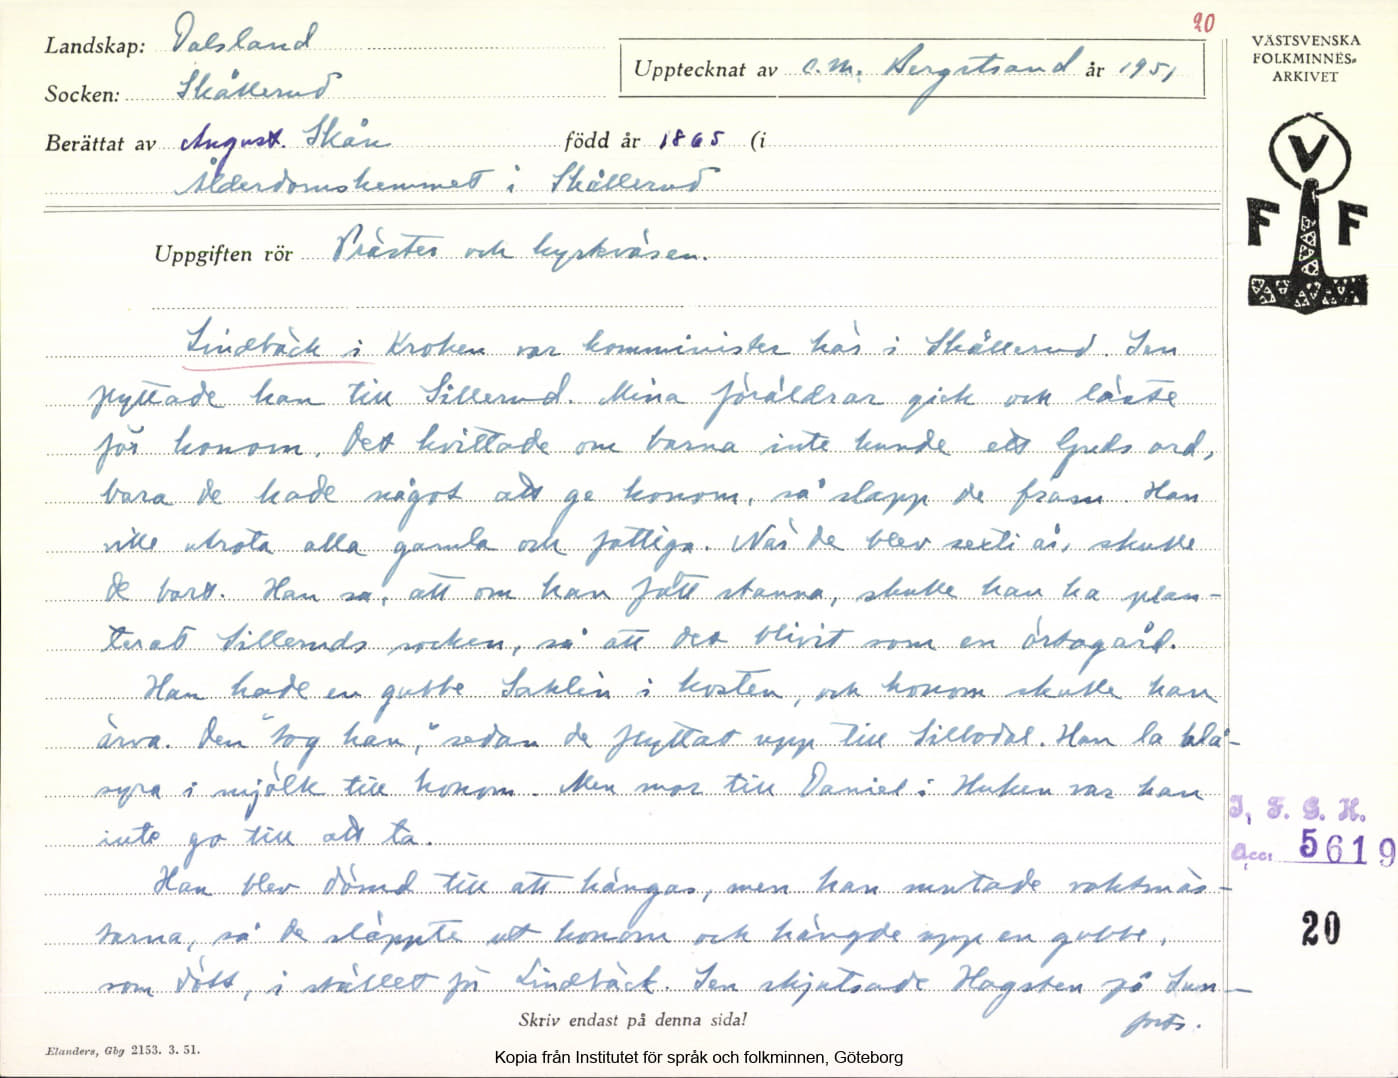 20
Landskap: Dalsland
Upptecknat av C. M. Bergstrand år 1951
Socken: Skållerud
Berättat av August Skån född år 1865 (i
Ålderdomshemmet i Skållerud
VÄSTSVENSKA
FOLKMINNES-
ARKIVET
V
F F
Uppgiften rör Präster och kyrkväsen.
Lindbäck i Kroken var komminister här i Skållerud. Sen
flyttade han till Sillerud. Mina föräldrar gick och läste
för honom. Det kvittade om barna inte kunde ett Guds ord,
bara de hade något att ge honom, så slapp de fram. Han
ville utrota alla gamla och fattiga. När de blev sexti år, skulle
de bort. Han sa, att om han fått stanna, skulle han ha plan-
terat Silleruds socken, så att det blivit som en örtagård.
Han hade en gubbe Saklin i kosten, och honom skulle han
ärva. Den "tog han," sedan de flyttat upp till Sillbodal. Han la blå-
syra i mjölk till honom. Men mor till Daniel i Huken var han
inte go till att ta.
Han blev dömd till att hängas, men han mutade vaktmäs-
tarna, så de släppte ut honom och hängde upp en gubbe,
som dött, i stället för Lindbäck. Sen skjutsade Hagsten på Sun-
forts.
I. F. G. H.
acc. 5619
20
Skriv endast på denna sida!
Elanders, Gbg 2153. 3. 51.
Kopia från Institutet för språk och folkminnen, Göteborg